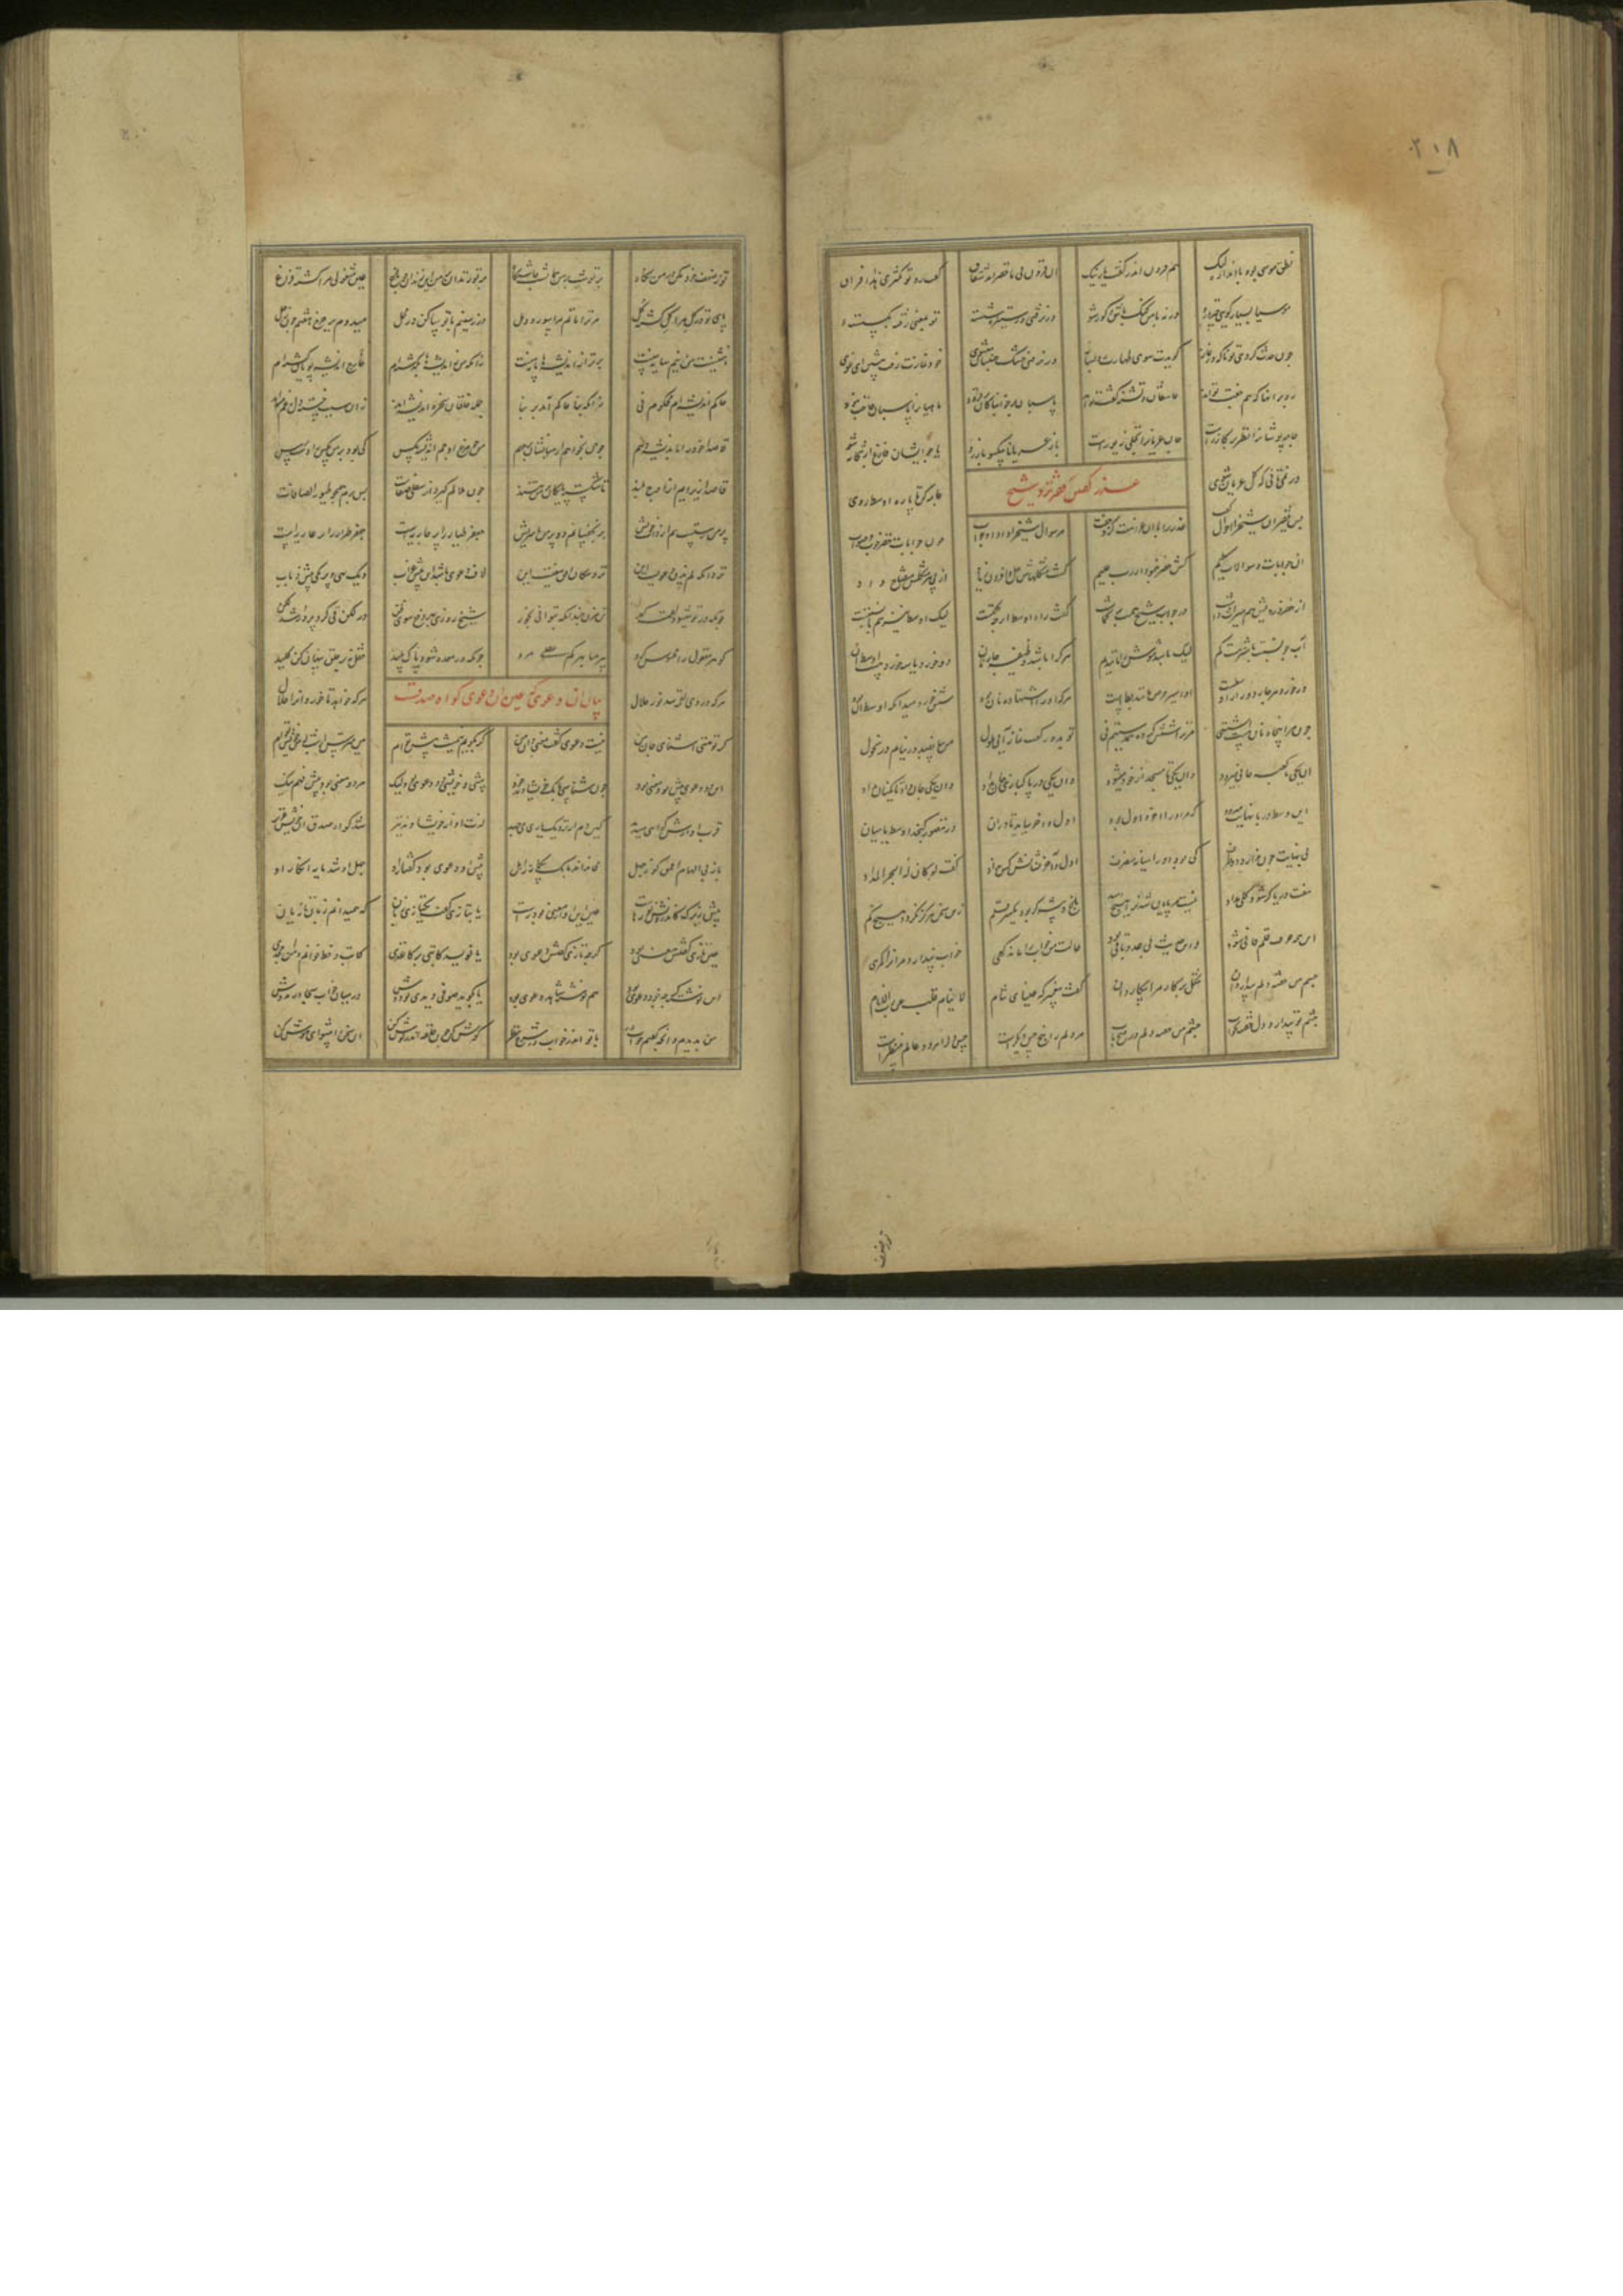 ۲۱۸
نطق موسی بود با اندازه لیک هم فزون آمد ز گفت یار نیک
آن فزونی با خضر آمد شقاق گفت رو تو مکثری هذا فراق
موسیا بسیار گویی ورنه با من گنگ باش و کور شو
ور نرفتی وز ستیزه شسته تو بمعنی رفته بگسسته
چون حدث کردی تو ناگه در نماز گویدت سوی طهارت رو بتاز
ور نرفتی خشک جنبان میشوی خود نمازت رفت پیش ای غوی
رو بر آنها که هم جفت تواند عاشقان و تشنه گفت تواند
پاسبان بر خوابناکان بر فزود ماهیان را پاسبان حاجت نبود
جامه پوشان را نظر بر گازرست جان عریان را تجلی زیورست
باز عریانان بیکسو باز رو یا چو ایشان فارغ از جامه شو
ور نمی تانی که کل عریان شوی جامه کم کن تا ره اوسط روی
عذر گفتن فقیر نزد شیخ
پس فقیر آن شیخ را احوال گفت عذر را با آن غرامت کرد جفت
مر سوال شیخ را داد او جواب چون جوابات خضر خوب و صواب
آن جوابات و سوالات کلیم کش خضر بنمود از رب علیم
گشت مشکلهاش حل و افزون زیاد از پی هر مشکلش مفتاح داد
از خضر درویش هم میراث داشت در جواب شیخ همت بر گماشت
گفت راه اوسط ار چه حکمتست لیک اوسط نیز هم با نسبتست
آب جو نسبت باشتر هست کم لیک باشد موش را آن همچو یم
هر که را باشد وظیفه چار نان دو خورد یا سه خورد هست اوسط آن
ور خورد هر چار دور از اوسطست او اسیر حرص مانند بطست
هر که او را اشتها ده نان بود شش خورد میدانکه اوسط آن بود
چون مرا پنجاه نان هست اشتهی مر ترا شش گرده همدستیم نی
تو بده رکعت نماز آیی ملول من بپانصد در نیایم در نحول
آن یکی تا کعبه حافی میرود وان یکی تا مسجد از خود میشود
وان یکی در پاکبازی جان داد وان یکی جان داد تا یک نان داد
این وسط در با نهایت میرود که مر او را آخر و اول بود
اول و آخر بباید تا در آن در تصور گنجد اوسط یا میان
بی نهایت چون ندارد دو طرف کی بود او را میانه منصرف
اول و آخر نشانش کس نداد گفت لو کان له البحر المداد
هفت دریا گر شود کلی مداد نیست مر پایان شدن را هیچ امید
باغ و بیشه گر بود یکسر قلم زین سخن هرگز نگردد هیچ کم
این همه حبر و قلم فانی شود وین حدیث بی عدد باقی بود
حالت من خواب را ماند گهی خواب پندارد مر آنرا گمرهی
چشم من خفته دلم بیدار دان شکل بیکار مرا بر کار دان
گفت پیغمبر که عینای تنام لا ینام قلب عن رب الانام
چشم تو بیدار و دل خفته بخواب چشم من خفته دلم در فتح باب
مر دلم را پنج حس دیگرست حس دل را هر دو عالم منظرست
تو ز ضعف
تو ز ضعف خود مکن در من نگاه بر تو شب بر من همان شب چاشتگاه
بر تو زندان بر من آن زندان چو باغ عین مشغولی مرا گشته فراغ
پای تو در گل مرا گل گشته گل مر ترا ماتم مرا سور و دهل
در زمینم با تو ساکن در محل میدوم بر چرخ هفتم چون زحل
همنشینت من نیم سایه منست برتر از اندیشه ها پایه منست
زانکه من ز اندیشه ها بگذشته ام خارج اندیشه پویان گشته ام
حاکم اندیشه ام محکوم نی زانکه بنا حاکم آمد بر بنا
جمله خلقان سخره اندیشه اند زان سبب خسته دل و غم پیشه اند
قاصدا خود را باندیشه دهم چون بخواهم از میانشان بر جهم
من چو مرغ اوجم اندیشه مگس کی بود بر من مگس را دسترس
قاصدا زیر آیم از اوج بلند تا شکسته پایگان بر من تنند
چون ملالم گیرد از سفلی صفات بر پرم همچون طیور الصافات
پر من رستست هم از ذات خویش بر نچفسانم دو پر من با سریش
جعفر طیار را پر جاریه ست جعفر طرار را پر عاریه ست
نزد آنکه لم یذق دعویست این نزد سکان افق معنیست این
لاف و دعوی باشد این پیش غراب دیگ تی و پر یکی پیش ذباب
چونکه در تو میشود لقمه گهر تن مزن چندانکه بتوانی بخور
شیخ روزی بهر دفع سوء ظن در لگن قی کرد پر در شد لگن
گوهر معقول را محسوس کرد پیر بینا بهر کم عقلی مرد
چونکه در معده شود پاکت پلید قفل نه بر حلق و پنهان کن کلید
هر که در وی لقمه شد نور جلال هر که خواهد تا خورد او را حلال
بیان آن دعوی که عین آن دعوی گواه صدقست
گر تو هستی آشنای جان من نیست دعوی گفت معنی لان من
گر بگویم نیم شب پیش توام هین مترس از شب که من خویش توام
این دو دعوی پیش تو معنی بود چون شناسی بانگ خویشاوند خود
پیشی و خویشی دو دعوی بود لیک هر دو معنی بود پیش فهم نیک
قرب آوازش گواهی میدهد کین دم از نزدیک یاری میجهد
لذت آواز خویشاوند نیز شد گوا بر صدق آن خویش عزیز
باز بی الهام احمق کو ز جهل می نداند بانگ بیگانه ز اهل
پیش او دعوی بود گفتار او جهل او شد مایه انکار او
پیش زیرک کاندرونش نورهاست عین این آواز معنی بود راست
یا بتازی گفت یک تازی زبان که همی دانم زبان تازیان
عین تازی گفتنش معنی بود گرچه تازی گفتنش دعوی بود
یا نویسد کاتبی بر کاغذی کاتب و خط خوانم و من ابجدی
این نوشته گرچه خود دعوی بود هم نوشته شاهد معنی بود
یا بگوید صوفیی دیدی تو دوش در میان خواب سجاده بدوش
من بدم آن و آنچه گفتم خواب در با تو اندر خواب در شرح نظر
گوش کن چون حلقه اندر گوش کن آن سخن را پیشوای هوش کن